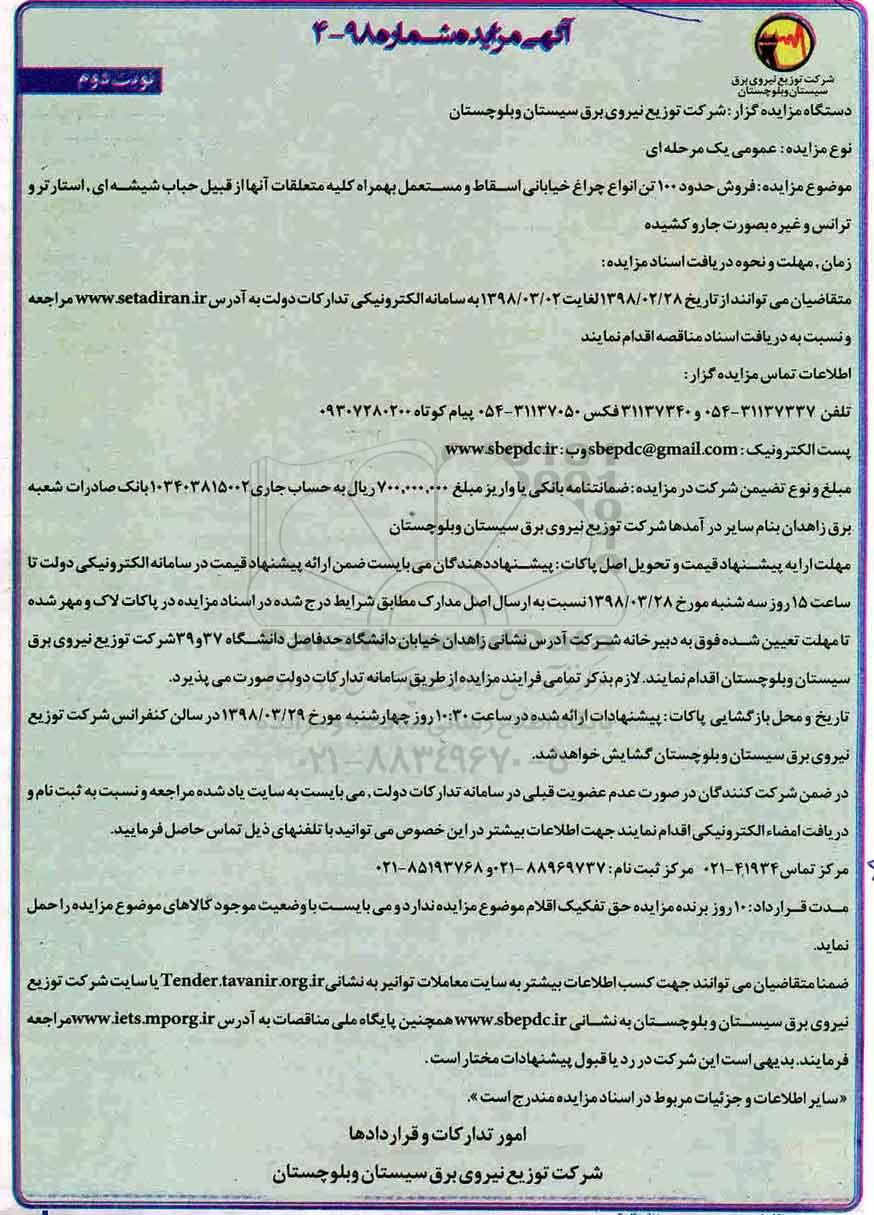 آگهی مزایده شماره ۹۸-۴
شرکت توزیع نیروی برق
سیستان وبلوچستان
نوبت دوم
دستگاه مزایده گزار: شرکت توزیع نیروی برق سیستان وبلوچستان
نوع مزایده: عمومی یک مرحله ای
موضوع مزایده: فروش حدود ۱۰۰ تن انواع چراغ خیابانی اسقاط و مستعمل بهمراه کلیه متعلقات آنها از قبیل حباب شیشه ای، استارتر و
ترانس و غیره بصورت جارو کشیده
زمان، مهلت و نحوه دریافت اسناد مزایده:
متقاضیان می توانند از تاریخ ۱۳۹۸/۰۲/۲۸ لغایت ۱۳۹۸/۰۳/۰۲ به سامانه الکترونیکی تدارکات دولت به آدرس www.setadiran.ir مراجعه
و نسبت به دریافت اسناد مناقصه اقدام نمایند
اطلاعات تماس مزایده گزار:
تلفن ۳۱۱۳۷۳۳۷-۰۵۴ و ۳۱۱۳۷۳۴۰ فکس ۳۱۱۳۷۰۵۰-۰۵۴ پیام کوتاه ۰۹۳۰۷۲۸۰۲۰۰
پست الکترونیک: sbepdc@gmail.com وب: www.sbepdc.ir
مبلغ و نوع تضمین شرکت در مزایده: ضمانتنامه بانکی یا واریز مبلغ ۷۰۰,۰۰۰,۰۰۰ ریال به حساب جاری ۱۰۳۴۰۳۸۱۵۰۰۲ بانک صادرات شعبه
برق زاهدان بنام سایر در آمدها شرکت توزیع نیروی برق سیستان وبلوچستان
مهلت ارایه پیشنهاد قیمت و تحویل اصل پاکات: پیشنهاددهندگان می بایست ضمن ارائه پیشنهاد قیمت در سامانه الکترونیکی دولت تا
ساعت ۱۵ روز سه شنبه مورخ ۱۳۹۸/۰۳/۲۸ نسبت به ارسال اصل مدارک مطابق شرایط درج شده در اسناد مزایده در پاکات لاک و مهر شده
تا مهلت تعیین شده فوق به دبیرخانه شرکت آدرس نشانی زاهدان خیابان دانشگاه حدفاصل دانشگاه ۳۷ و ۳۹ شرکت توزیع نیروی برق
سیستان وبلوچستان اقدام نمایند. لازم بذکر تمامی فرایند مزایده از طریق سامانه تدارکات دولت صورت می پذیرد.
تاریخ و محل بازگشایی پاکات: پیشنهادات ارائه شده در ساعت ۱۰:۳۰ روز چهارشنبه مورخ ۱۳۹۸/۰۳/۲۹ در سالن کنفرانس شرکت توزیع
نیروی برق سیستان وبلوچستان گشایش خواهد شد.
۰۲۱-۸۸۳۴۹۶۷۰-۵
در ضمن شرکت کنندگان در صورت عدم عضویت قبلی در سامانه تدارکات دولت، می بایست به سایت یاد شده مراجعه و نسبت به ثبت نام و
دریافت امضاء الکترونیکی اقدام نمایند جهت اطلاعات بیشتر در این خصوص می توانید با تلفنهای ذیل تماس حاصل فرمایید.
مرکز تماس ۴۱۹۳۴-۰۲۱ مرکز ثبت نام: ۸۸۹۶۹۷۳۷-۰۲۱ و ۸۵۱۹۳۷۶۸-۰۲۱
مدت قرارداد: ۱۰ روز برنده مزایده حق تفکیک اقلام موضوع مزایده ندارد و می بایست با وضعیت موجود کالاهای موضوع مزایده را حمل
نماید.
ضمنا متقاضیان می توانند جهت کسب اطلاعات بیشتر به سایت معاملات توانیر به نشانی Tender.tavanir.org.ir یا سایت شرکت توزیع
نیروی برق سیستان و بلوچستان به نشانی www.sbepdc.ir همچنین پایگاه ملی مناقصات به آدرس www.iets.mporg.ir مراجعه
فرمایند. بدیهی است این شرکت در رد یا قبول پیشنهادات مختار است.
«سایر اطلاعات و جزئیات مربوط در اسناد مزایده مندرج است».
امور تدارکات و قراردادها
شرکت توزیع نیروی برق سیستان وبلوچستان